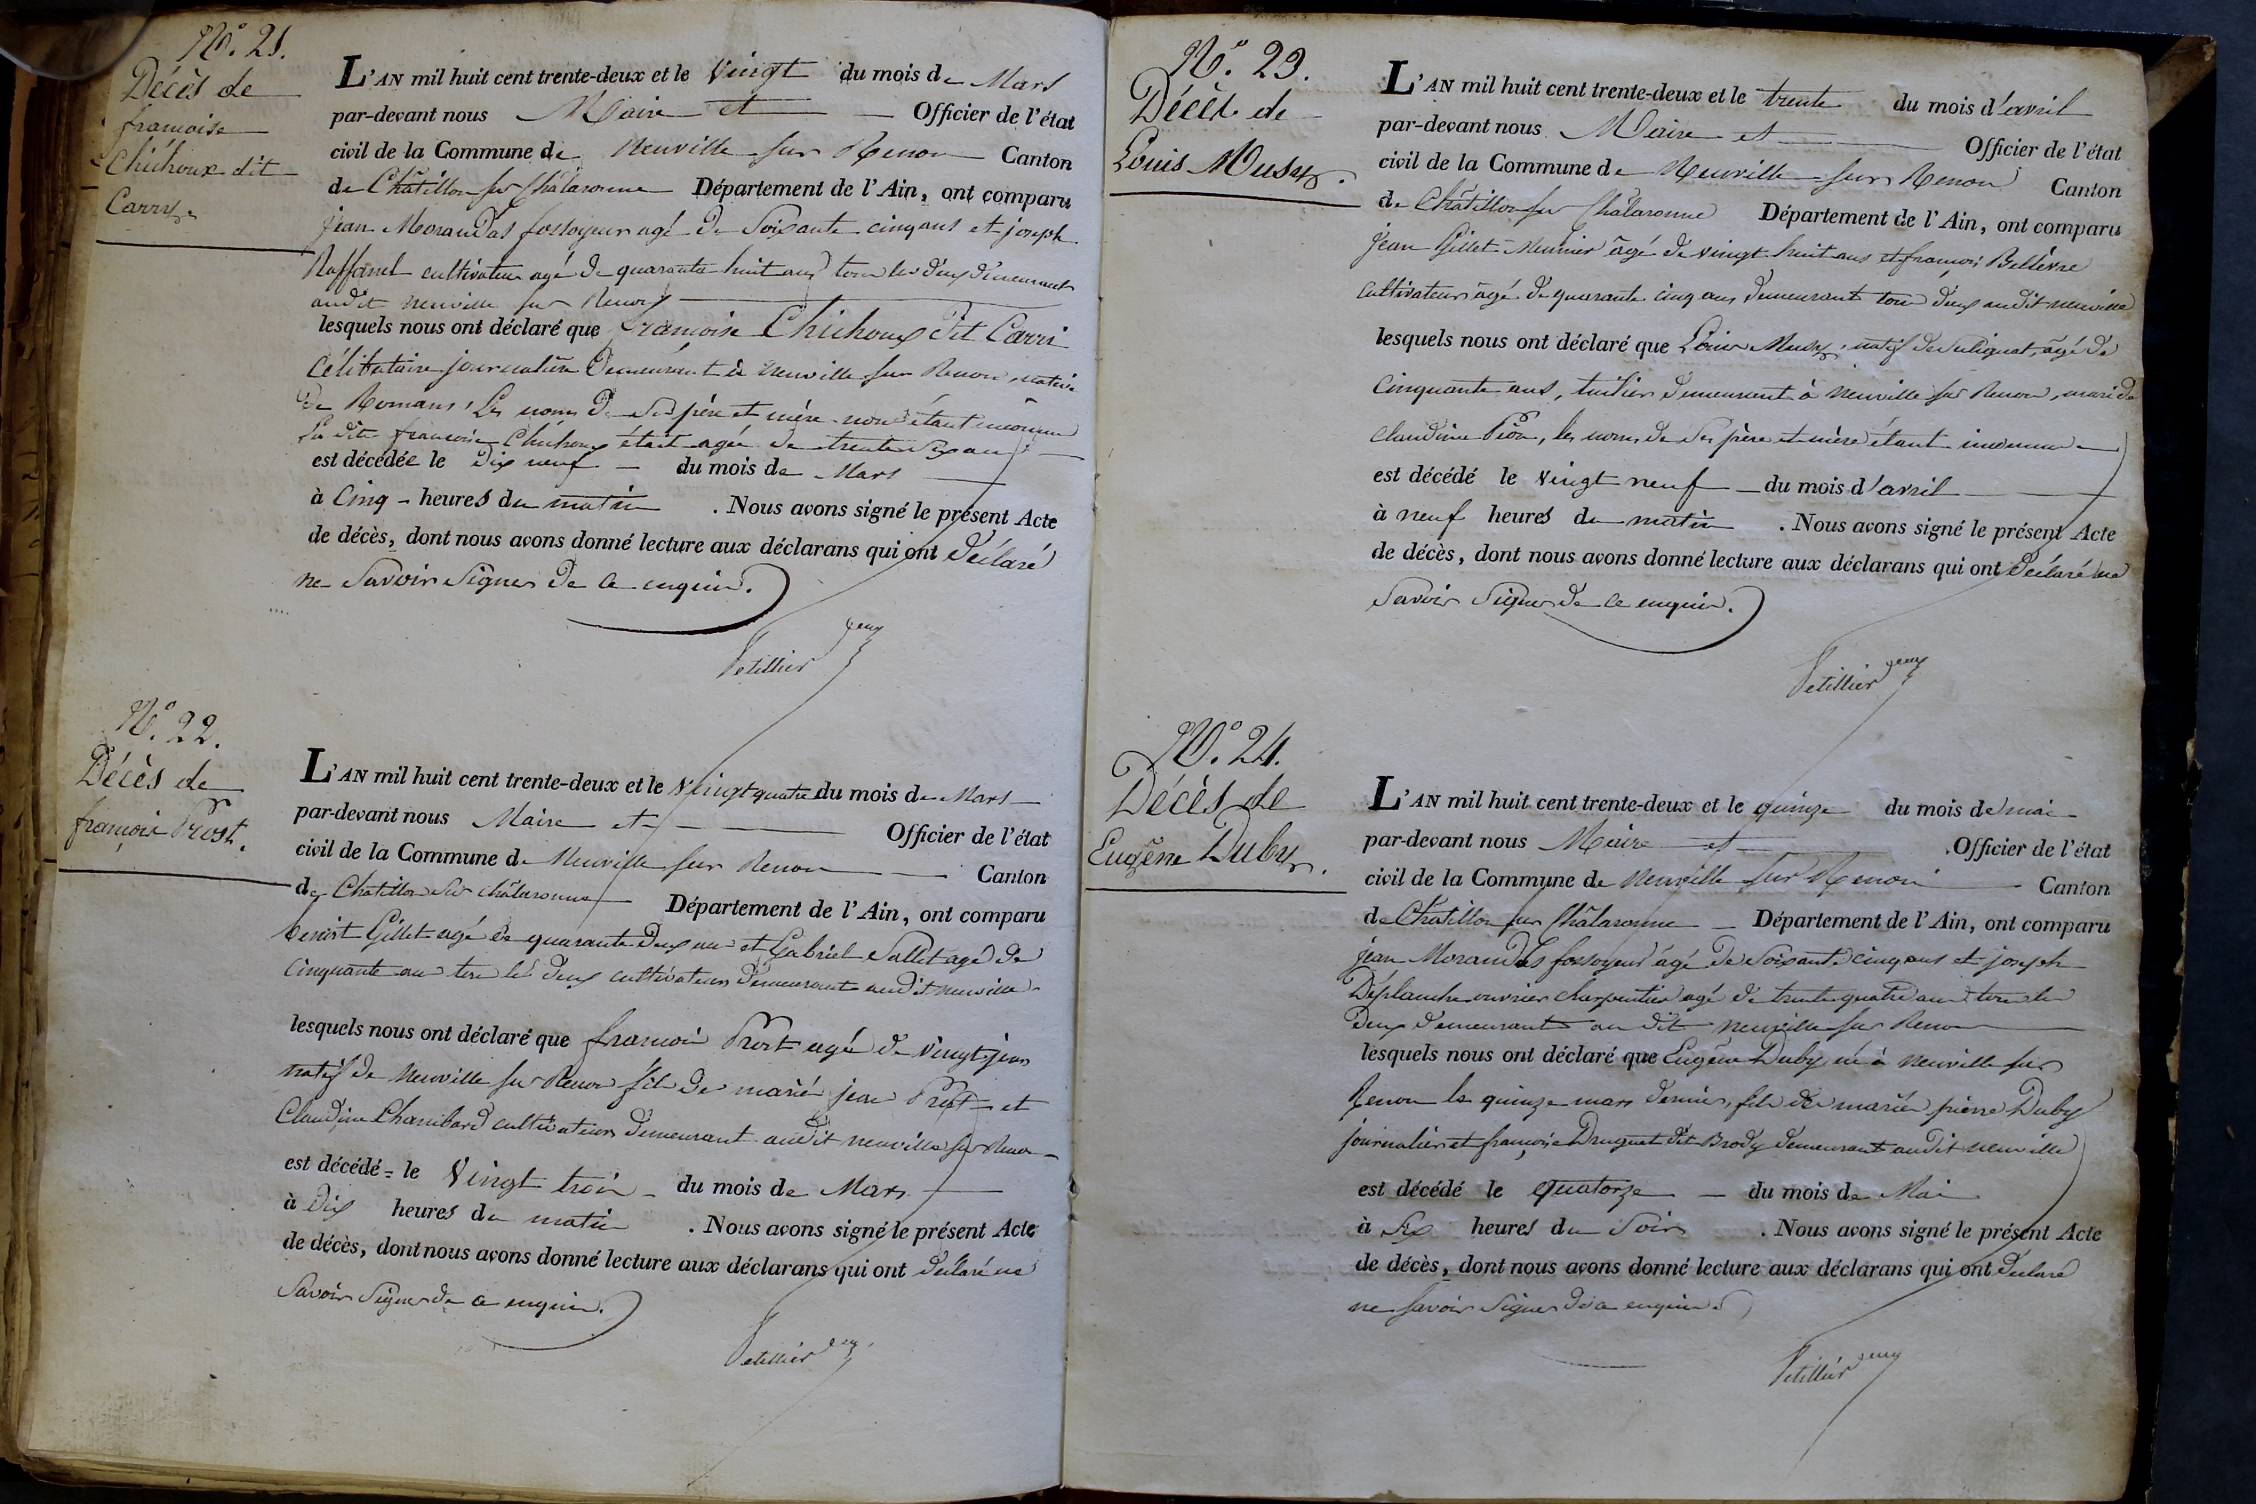 N.º 21.
Décès de
francoise
Chichoux dit
Carry.
L'AN mil huit cent trente-deux et le Vingt du mois de Mars
par-devant nous Maire et Officier de l'état
civil de la Commune de Neuville sur Renon Canton
de Châtillon sur Châlaronne Département de l'Ain, ont comparu
jean Morandas fossoyeur agé de Soixante cinq ans et joseph
Raffanel cultivateur agé de quarante huit ans tous les deux demeurant
audit neuville sur Renon
lesquels nous ont déclaré que françoise Chichoux dit Carri
Célibataire journalière Demeurant à Neuville sur Renon, native
de Romans, Les noms de Ses père et mère nous étant inconnu
La dite francoise Chichoux était agée de trente Six ans
est décédée le Dix neuf du mois de Mars
à Cinq heures du matin . Nous avons signé le présent Acte
de décès, dont nous avons donné lecture aux déclarans qui ont déclaré
ne Savoir Signer de ce enquis.
Petillier
N.º 22.
Décès de
françois Prost.
L'AN mil huit cent trente-deux et le Vingt quatre du mois de Mars
par-devant nous Maire et Officier de l'état
civil de la Commune de Neuville sur Renon Canton
de Chatillon sur châlaronne Département de l'Ain, ont comparu
benoit Gillet agé de quarante deux ans et Gabriel Sallet agé de
Cinquante ans tous les deux cultivateurs demeurant audit neuville
lesquels nous ont déclaré que françois Prost agé de Vingt jours
natif de Neuville sur Renon fils de mariés jean Prost et
Claudine Chambard cultivateurs demeurant audit neuville sur Renon
est décédé le Vingt trois du mois de Mars
à Dix heures du matin . Nous avons signé le présent Acte
de décès, dont nous avons donné lecture aux déclarans qui ont déclaré ne
Savoir Signer de ce enquis.
Petillier
N.º 23.
Décès de
Louis Musy.
L'AN mil huit cent trente-deux et le trente du mois d'avril
par-devant nous Maire et Officier de l'état
civil de la Commune de Neuville sur Renon Canton
de Châtillon sur Châlaronne Département de l'Ain, ont comparu
jean Gillet Meunier âgé de vingt huit ans et françois Bellèvre
cultivateur âgé de quarante cinq ans demeurant tous deux audit neuville
lesquels nous ont déclaré que Louis Musy natif de Sulignat, âgé de
Cinquante ans, tuilier demeurant à Neuville sur Renon, mari de
claudine Pion, les noms de Ses père et mère étant inconnus
est décédé le Vingt neuf du mois d'avril
à neuf heures du matin . Nous avons signé le présent Acte
de décès, dont nous avons donné lecture aux déclarans qui ont déclaré ne
Savoir Signer de ce enquis.
Petillier
N.º 24.
Décès de
Eugène Duby.
L'AN mil huit cent trente-deux et le quinze du mois de mai
par-devant nous Maire et Officier de l'état
civil de la Commune de Neuville sur Renon Canton
de Chatillon sur Châlaronne Département de l'Ain, ont comparu
jean Morandas fossoyeur âgé de Soixante cinq ans et joseph
Déplanche ouvrier charpentier agé de trente quatre ans tous les
deux demeurant au dit neuville sur Renon
lesquels nous ont déclaré que Eugène Duby né à neuville sur
Renon le quinze mars dernier, fils de mariés pierre Duby
journalier et françoise Druguet dit Brody demeurant audit neuville
est décédé le quatorze du mois de Mai
à Six heures du Soir . Nous avons signé le présent Acte
de décès, dont nous avons donné lecture aux déclarans qui ont déclaré
ne Savoir Signer de ce enquis.
Petillier